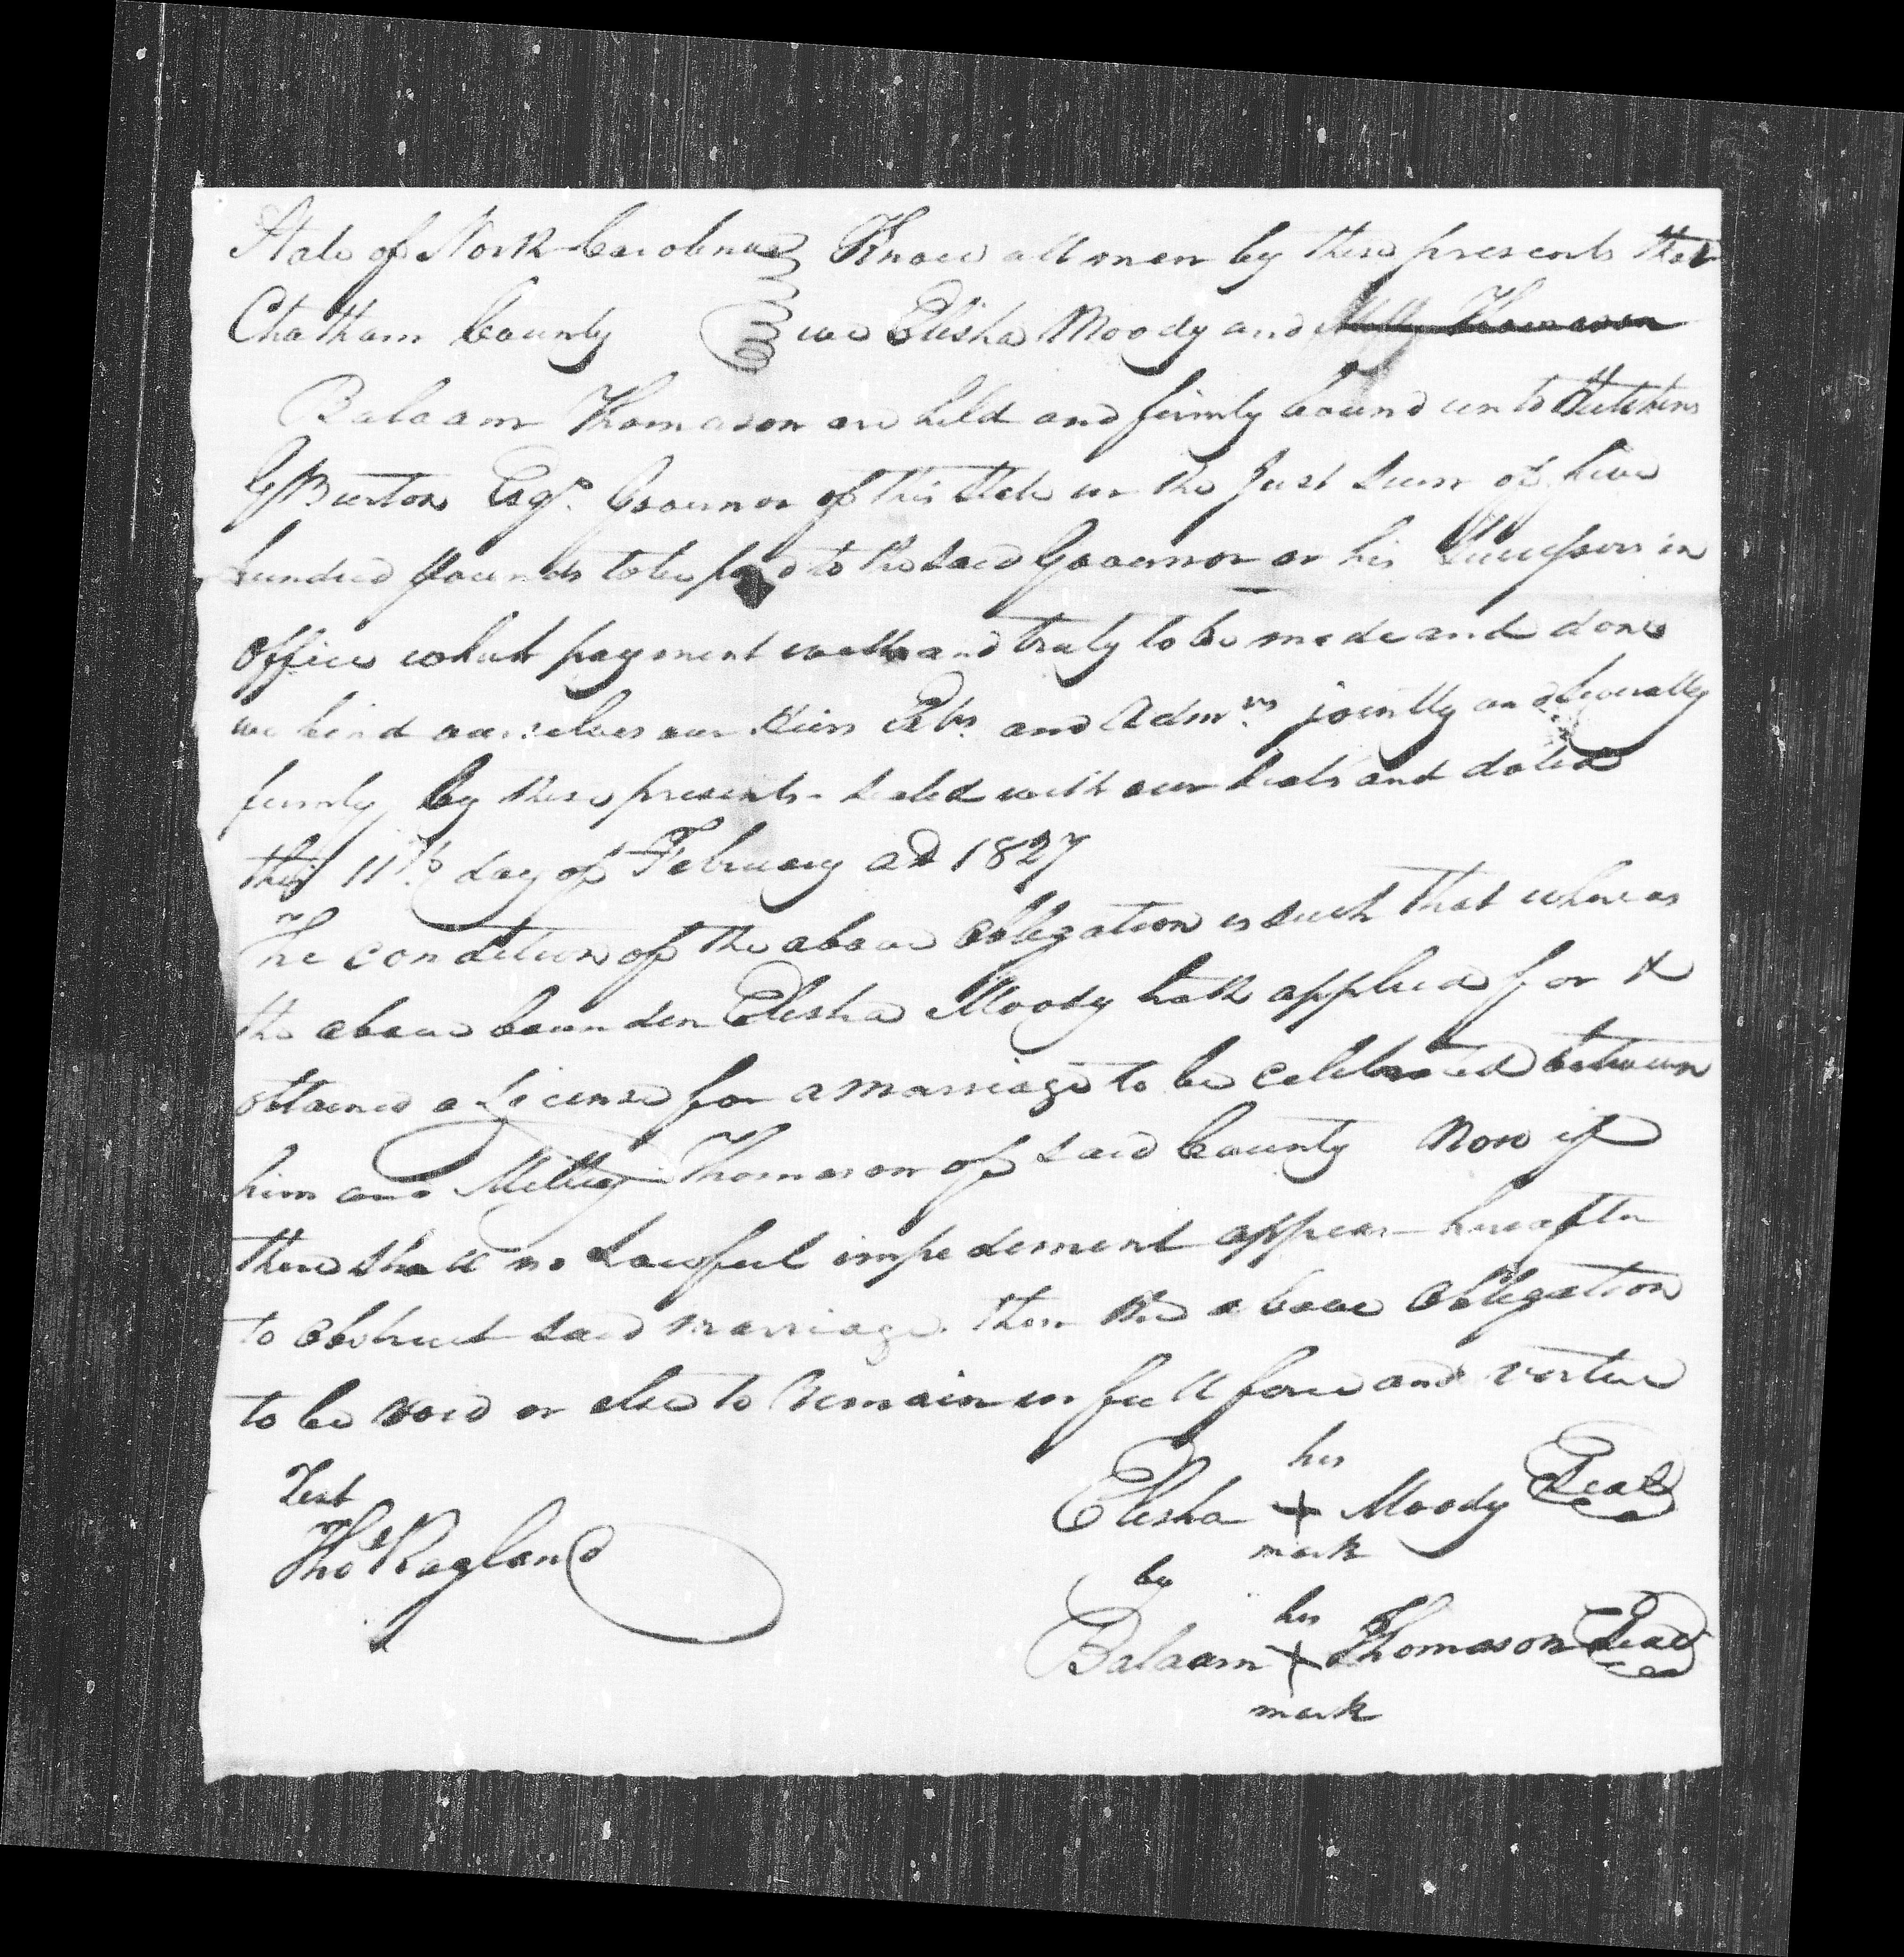 State of North Carolina Know all men by these presents that
Chatham County we Elisha Moody and Milly Thomason
Balaam Thomason are held and firmly bound unto Hutchins
G Burton Esqr. Governor of this State in the Just Sum of five
hundred pounds to be paid to the said Governor or his Successors in
office which payment well and truly to be made and done
we bind ourselves our Heirs Exrs. and Admrs. jointly and Severally
firmly by these presents - Sealed with our Seals and dated
this 11th day of February AD 1827
The condition of the above obligation is such that whereas
the above bounden Elisha Moody hath applied for &
obtained a License for a marriage to be celebrated between
him and Milley Thomason of said County Now if
there shall no Lawful impediment appear hereafter
to obstruct said marriage then the above obligation
to be void or else to Remain in full force and vertue
Test his
Elisha + Moody Seal
Thos Ragland mark
by his
Balaam + Thomason Seal
mark